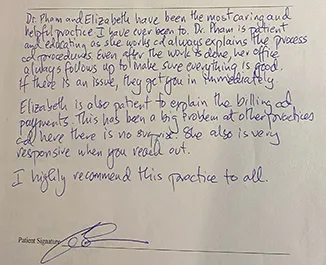 Dr. Pham and Elizabeth have been the most caring and
helpful practice I have ever been to. Dr. Pham is patient
and educating as she works and always explains the process
and procedures. Even after the work is done, her office
always follows up to make sure everything is good.
If there is an issue, they get you in immediately.
Elizabeth is also patient to explain the billing and
payments. This has been a big problem at other practices
and here there is no surprise. She also is very
responsive when you reach out.
I highly recommend this practice to all.
Patient Signature